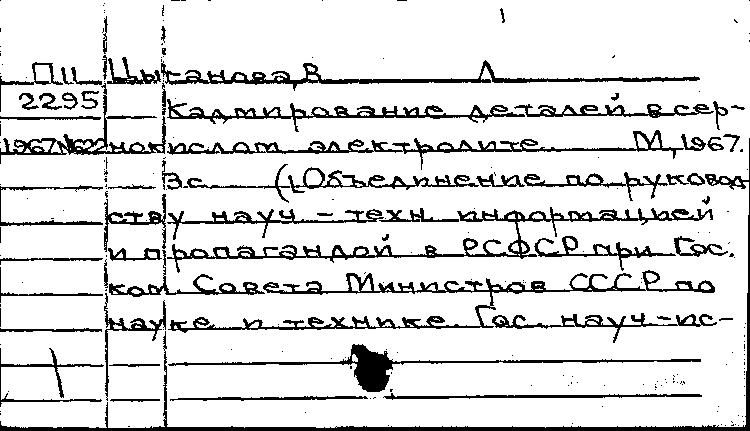 П11 Цыганова, В Л
2295 Кадмирование деталей в сер-
1967 №622 нокислом электролите. М, 1967.
3с. (Объединение по руковод-
ству науч-техн информацией
и пропагандой в РСФСР при Гос.
ком. Совета Министров СССР по
науке и технике. Гос. науч-ис-